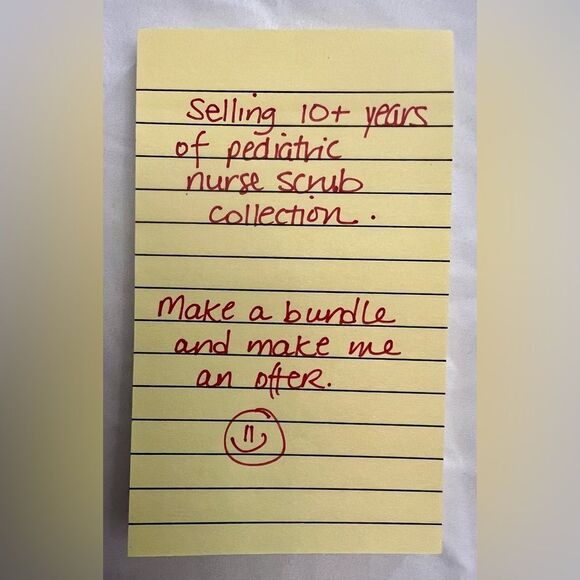 Selling 10+ years
of pediatric
nurse scrub
collection.
Make a bundle
and make me
an offer.